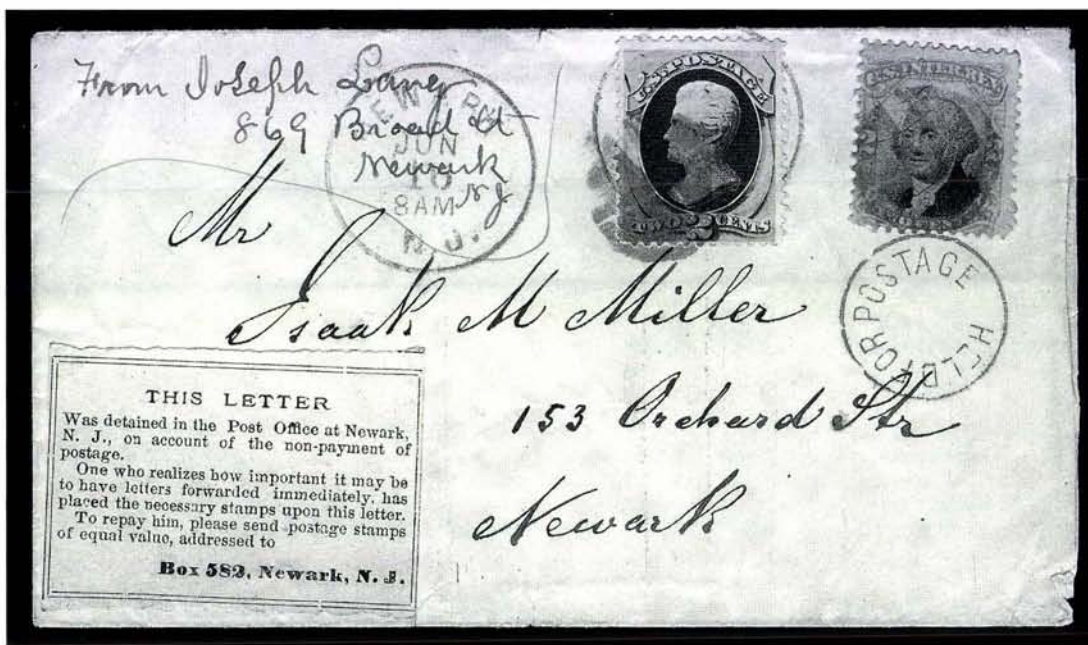 From Joseph Lang
869 Broad St
Newark
N J
NEWARK
JUN
10
8AM
N.J.
U.S. POSTAGE
TWO 2 CENTS
U.S. INTER. REV.
HELD FOR POSTAGE
Mr
Isaak M Miller
153 Orchard Str
Newark
THIS LETTER
Was detained in the Post Office at Newark,
N. J., on account of the non-payment of
postage.
One who realizes how important it may be
to have letters forwarded immediately, has
placed the necessary stamps upon this letter.
To repay him, please send postage stamps
of equal value, addressed to
Box 582, Newark, N. J.